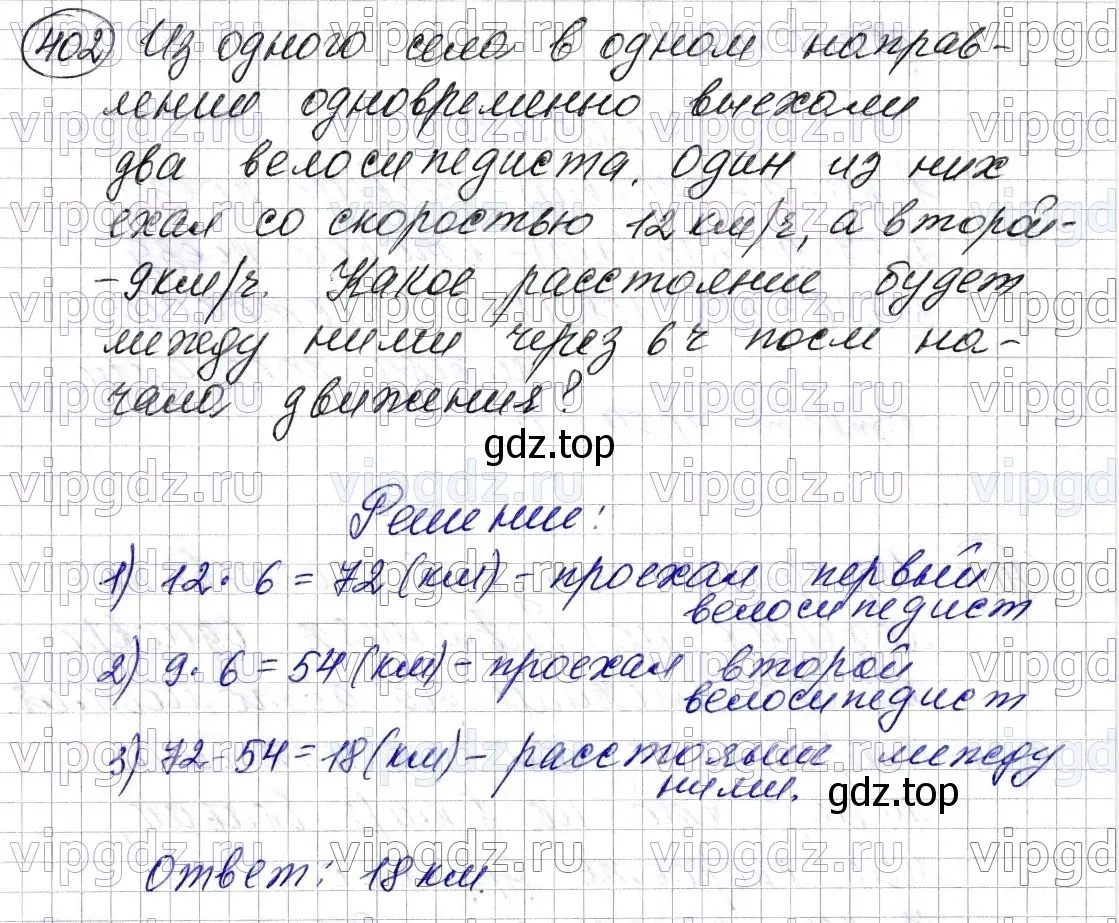 402 Из одного села в одном направ-
лении одновременно выехали
два велосипедиста. Один из них
ехал со скоростью 12 км/ч, а второй-
-9км/ч. Какое расстояние будет
между ними через 6 ч после на-
чала движения?
gdz.top
Решение:
1) 12 · 6 = 72 (км) - проехал первый
велосипедист
2) 9 · 6 = 54 (км) - проехал второй
велосипедист
3) 72 - 54 = 18 (км) - расстояние между
ними.
gdz.top
Ответ: 18 км.
vipgdz.ru